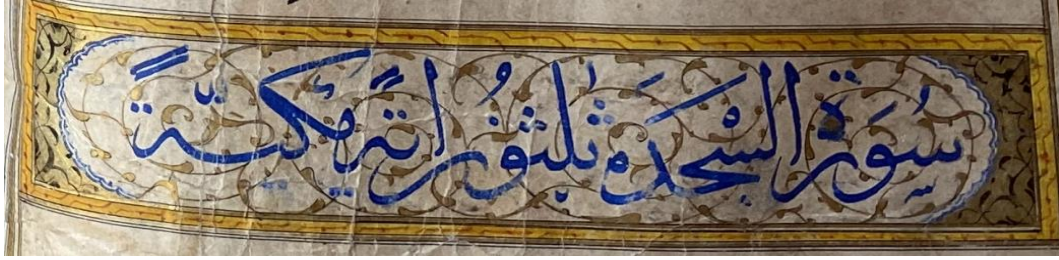 سُورَة السَّجْدَة ثلثون اٰيَةً مكيّةً